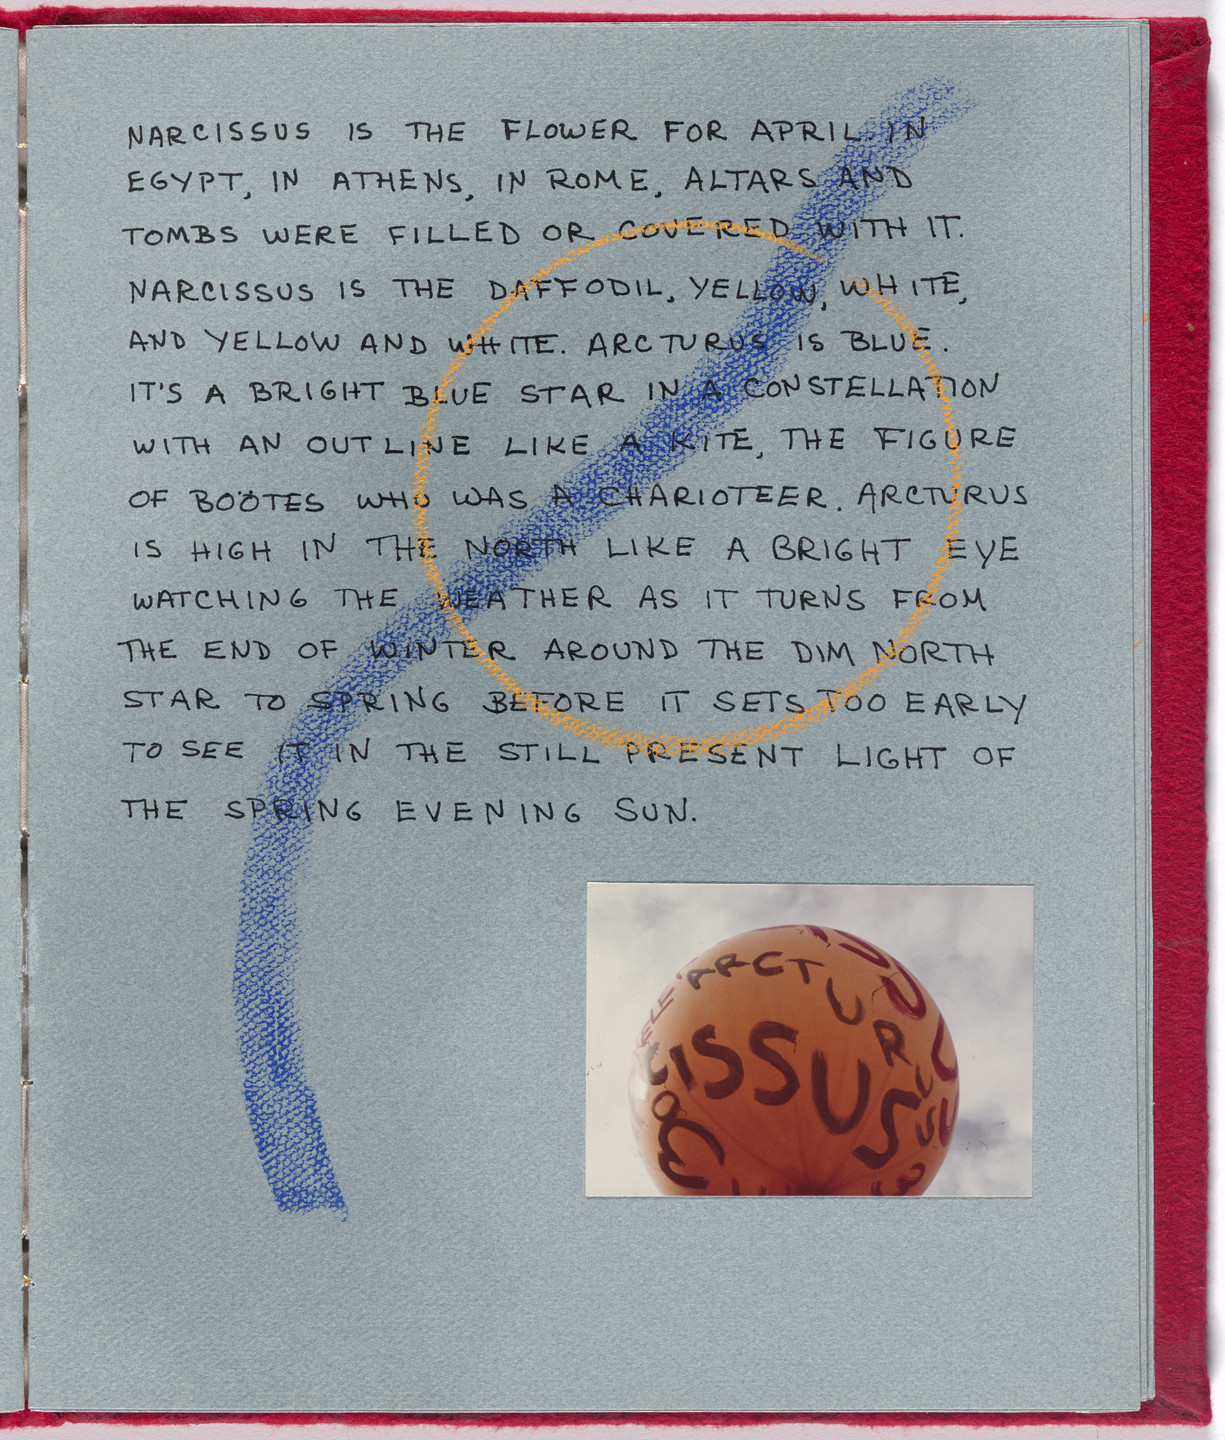 NARCISSUS IS THE FLOWER FOR APRIL. IN
EGYPT, IN ATHENS, IN ROME, ALTARS AND
TOMBS WERE FILLED OR COVERED WITH IT.
NARCISSUS IS THE DAFFODIL, YELLOW, WHITE,
AND YELLOW AND WHITE. ARCTURUS IS BLUE.
IT'S A BRIGHT BLUE STAR IN A CONSTELLATION
WITH AN OUTLINE LIKE A KITE, THE FIGURE
OF BOÖTES WHO WAS A CHARIOTEER. ARCTURUS
IS HIGH IN THE NORTH LIKE A BRIGHT EYE
WATCHING THE WEATHER AS IT TURNS FROM
THE END OF WINTER AROUND THE DIM NORTH
STAR TO SPRING BEFORE IT SETS TOO EARLY
TO SEE IT IN THE STILL PRESENT LIGHT OF
THE SPRING EVENING SUN.
ARCTURUS
CISSUS